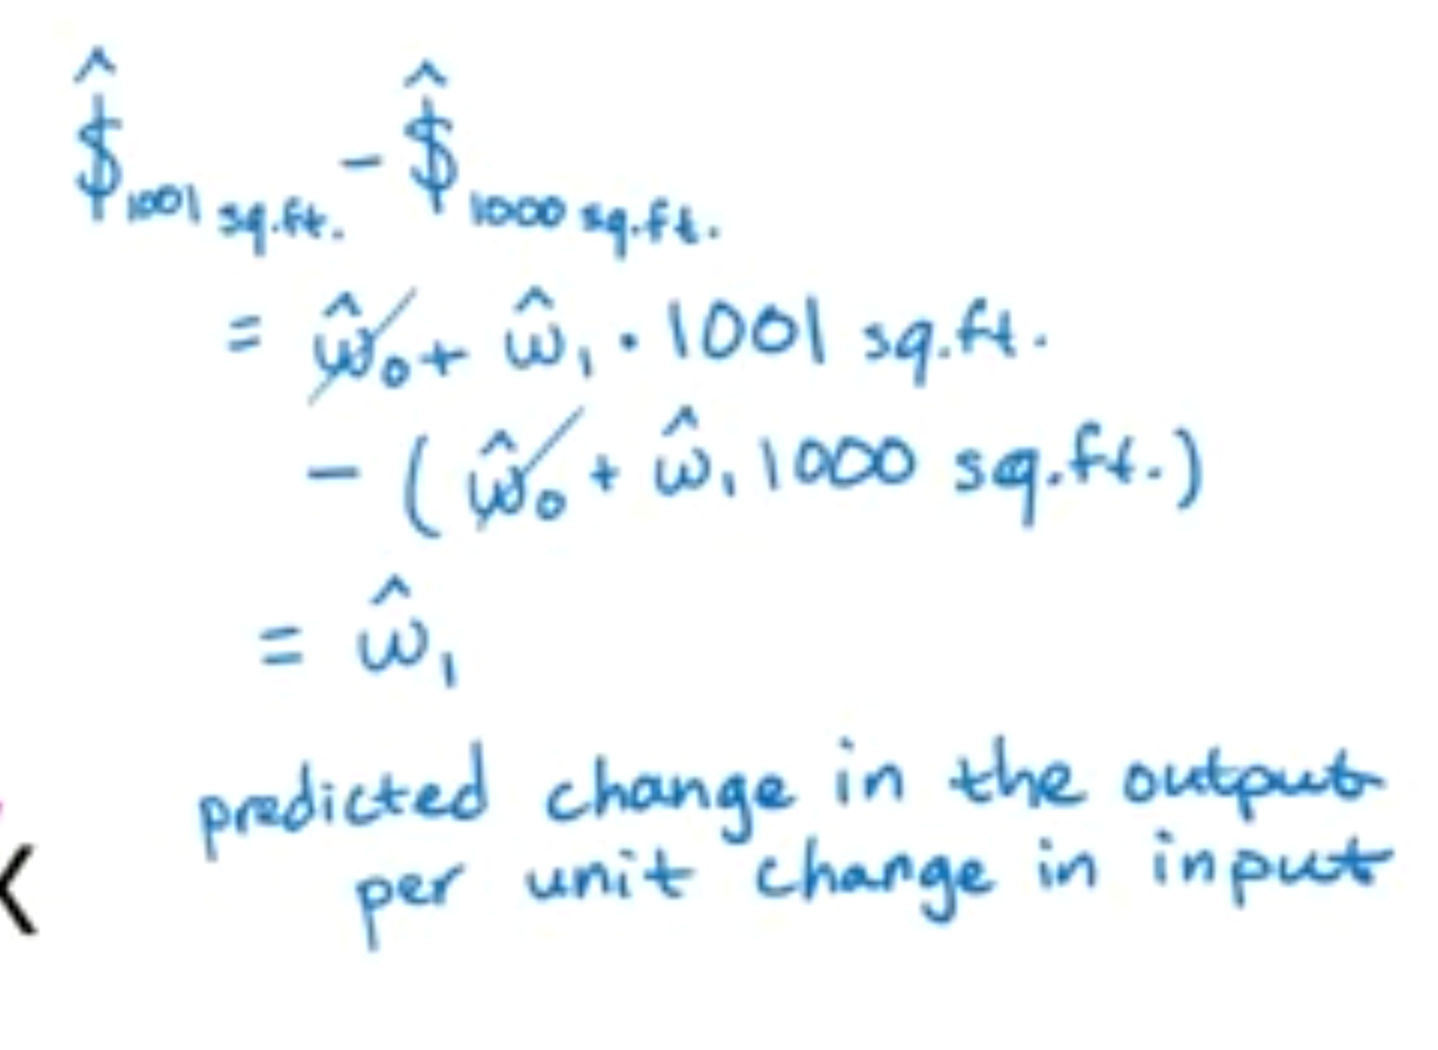 $̂ 1001 sq.ft. - $̂ 1000 sq.ft.
= ŵ₀ + ŵ₁ · 1001 sq.ft.
- ( ŵ₀ + ŵ₁ 1000 sq.ft.)
= ŵ₁
predicted change in the output
per unit change in input